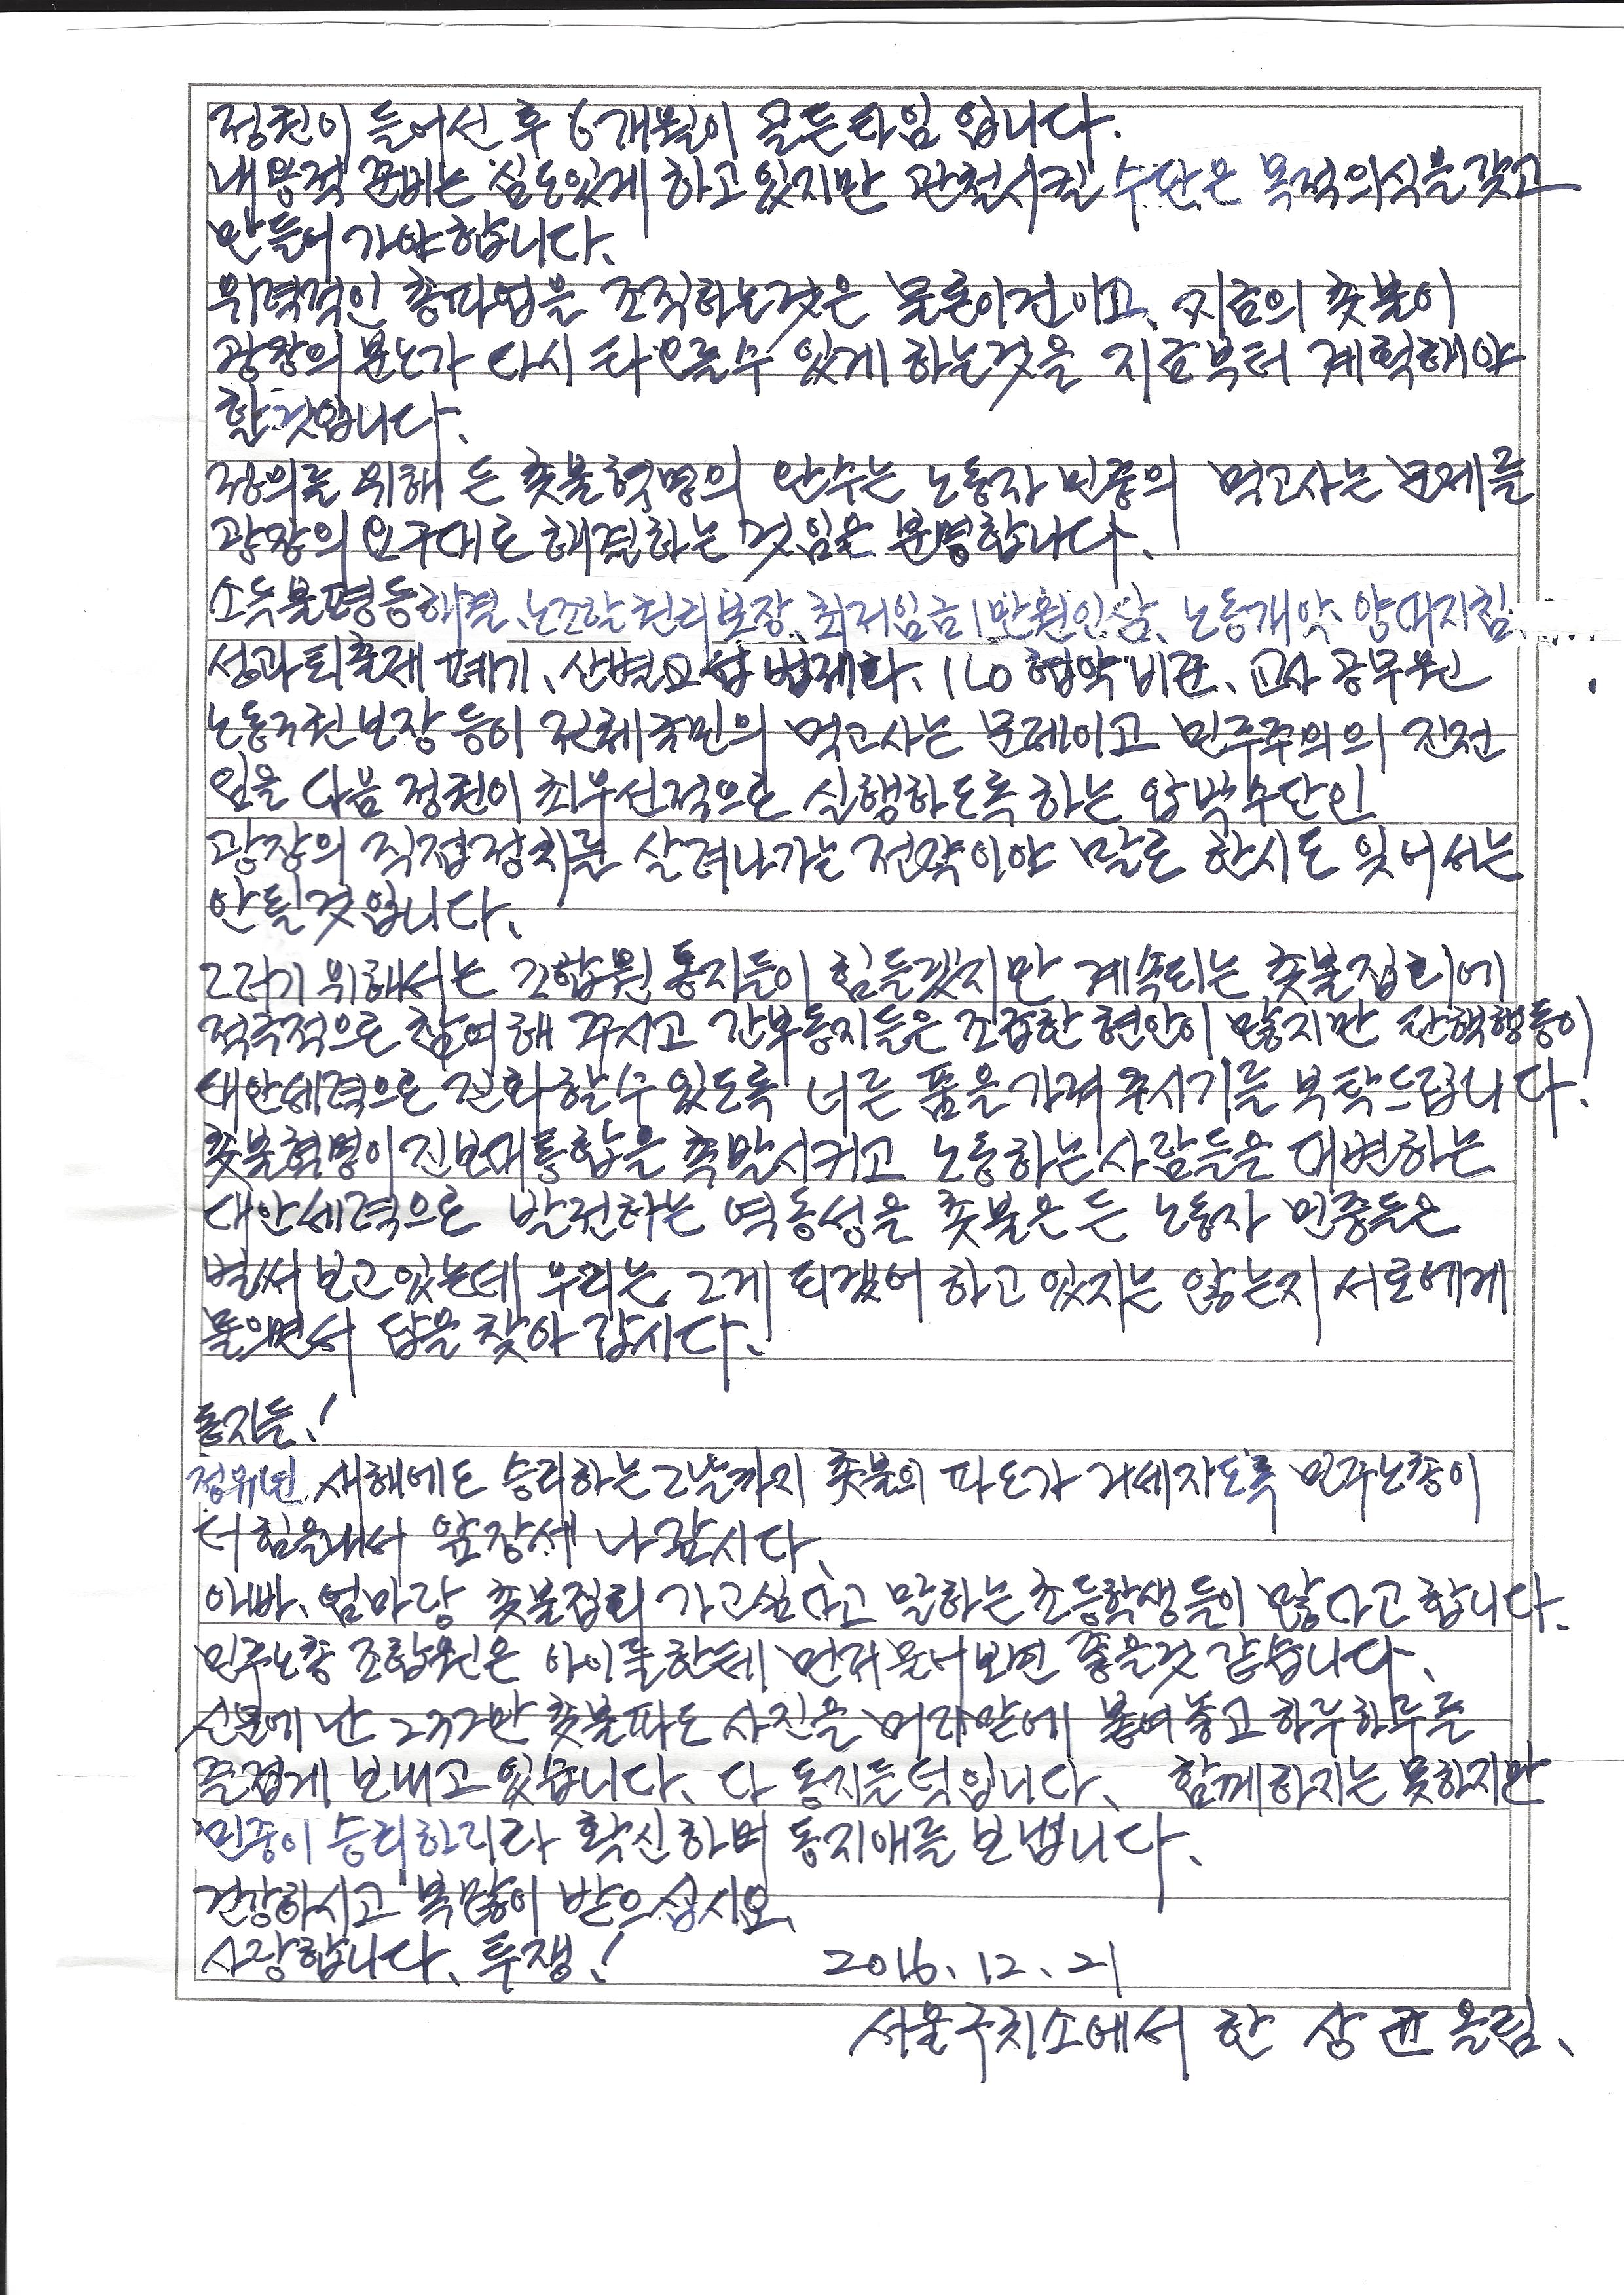 정권이 들어선 후 6개월이 골든타임 입니다.
내용적 준비는 심도있게 하고 있지만 관철시킬 수단은 목적의식을 갖고
만들어 가야합니다.
위력적인 총파업을 조직하는것은 물론이건이고, 지금의 촛불이
광장의 분노가 다시 타오를수 있게 하는것을 지금부터 계획해야
할 것입니다.
정의를 위해 든 촛불혁명의 완수는 노동자 민중의 먹고사는 문제를
광장의 요구대로 해결하는 것임은 분명합니다.
소득불평등해결, 노조할 권리보장, 최저임금1만원인상, 노동개악, 양대지침,
성과퇴출제 폐기, 산별교섭 법제화, ILO 협약 비준, 교사 공무원
노동3권 보장 등이 전체국민의 먹고사는 문제이고 민주주의의 진전
임을 다음 정권이 최우선적으로 실행하도록 하는 압박수단인
광장의 직접정치를 살려나가는 전략이야 말로 한시도 잊어서는
안될것입니다.
그러기 위해서는 조합원 동지들이 힘들겠지만 계속되는 촛불집회에
적극적으로 참여해 주시고 간부동지들은 조급한 현안이 많지만 탄핵행동이
대안세력으로 전화할수 있도록 너른 품을 가져주시기를 부탁드립니다.
촛불혁명이 진보대통합을 촉발시키고 노동하는 사람들을 대변하는
대안세력으로 발전하는 역동성을 촛불은 든 노동자 민중들은
벌써 보고있는데 우리는 그게 되겠어 하고 있지는 않는지 서로에게
물으면서 답을 찾아 갑시다.
동지들!
정유년 새해에도 승리하는 그날까지 촛불의 파도가 거세지도록 민주노총이
더 힘을내서 앞장서 나갑시다.
아빠, 엄마랑 촛불집회 가고싶다고 말하는 초등학생들이 많다고 합니다.
민주노총 조합원은 아이들한테 먼저 물어보면 좋을것 같습니다.
신문에 난 232만 촛불파도 사진을 머리맡에 붙여놓고 하루하루를
즐겁게 보내고 있습니다. 다 동지들덕입니다. 함께하지는 못하지만
민중이 승리하리라 확신하며 동지애를 보냅니다.
건강하시고 복많이 받으십시오.
사랑합니다. 투쟁! 2016. 12. 21
서울구치소에서 한 상 균 올림.